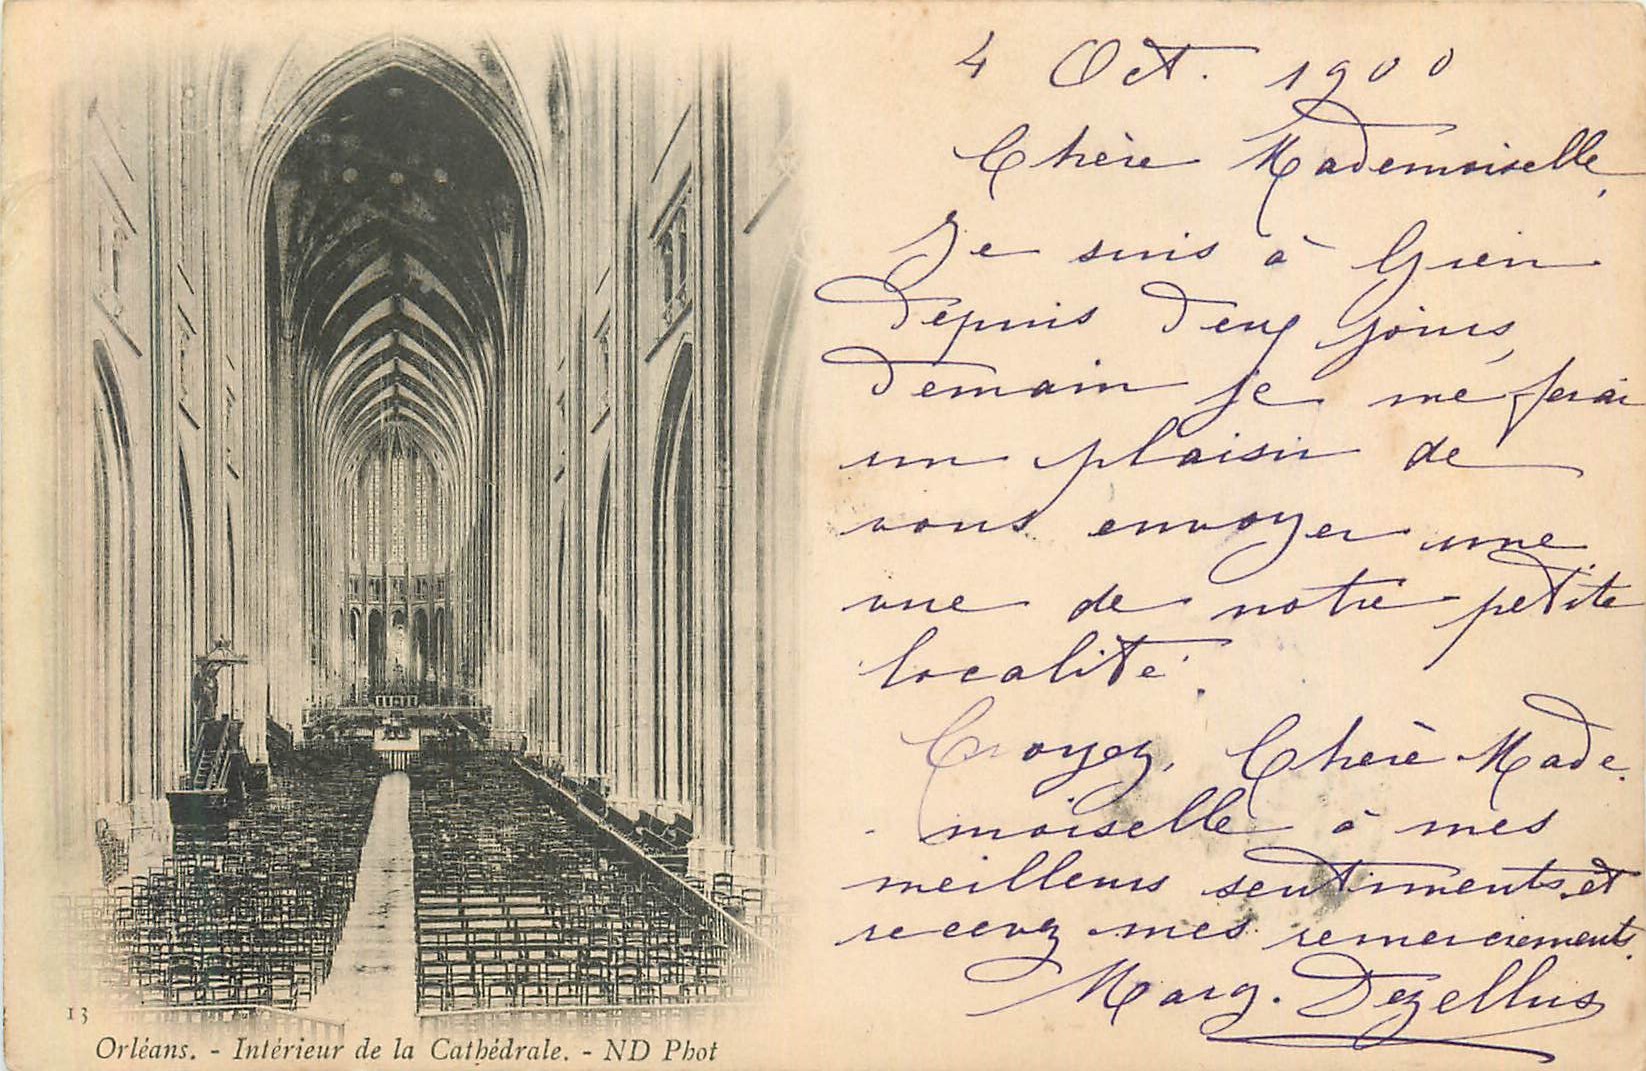 4 Oct. 1900
Chère Mademoiselle,
Je suis à Gien
depuis deux jours,
demain je me ferai
un plaisir de
vous envoyer une
vue de notre petite
localité.
Croyez, Chère Made-
moiselle à mes
meilleurs sentiments et
recevez mes remerciements.
Marg. Dezellus
13
Orléans. - Intérieur de la Cathédrale. - ND Phot